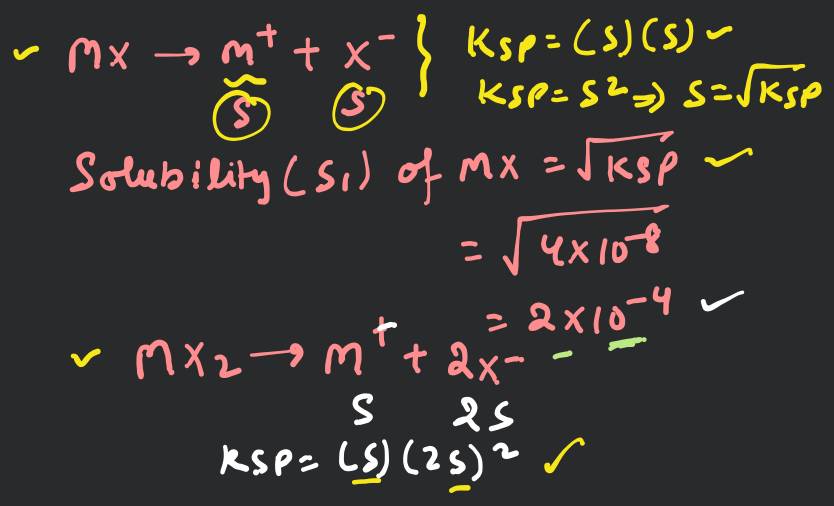 MX → M⁺ + X⁻ } Ksp = (S)(S)
S S Ksp = S² ⇒ S = √Ksp
Solubility (S₁) of MX = √Ksp
= √4×10⁻⁸
= 2×10⁻⁴
MX₂ → M⁺ + 2X⁻
S 2S
Ksp = (S)(2S)²